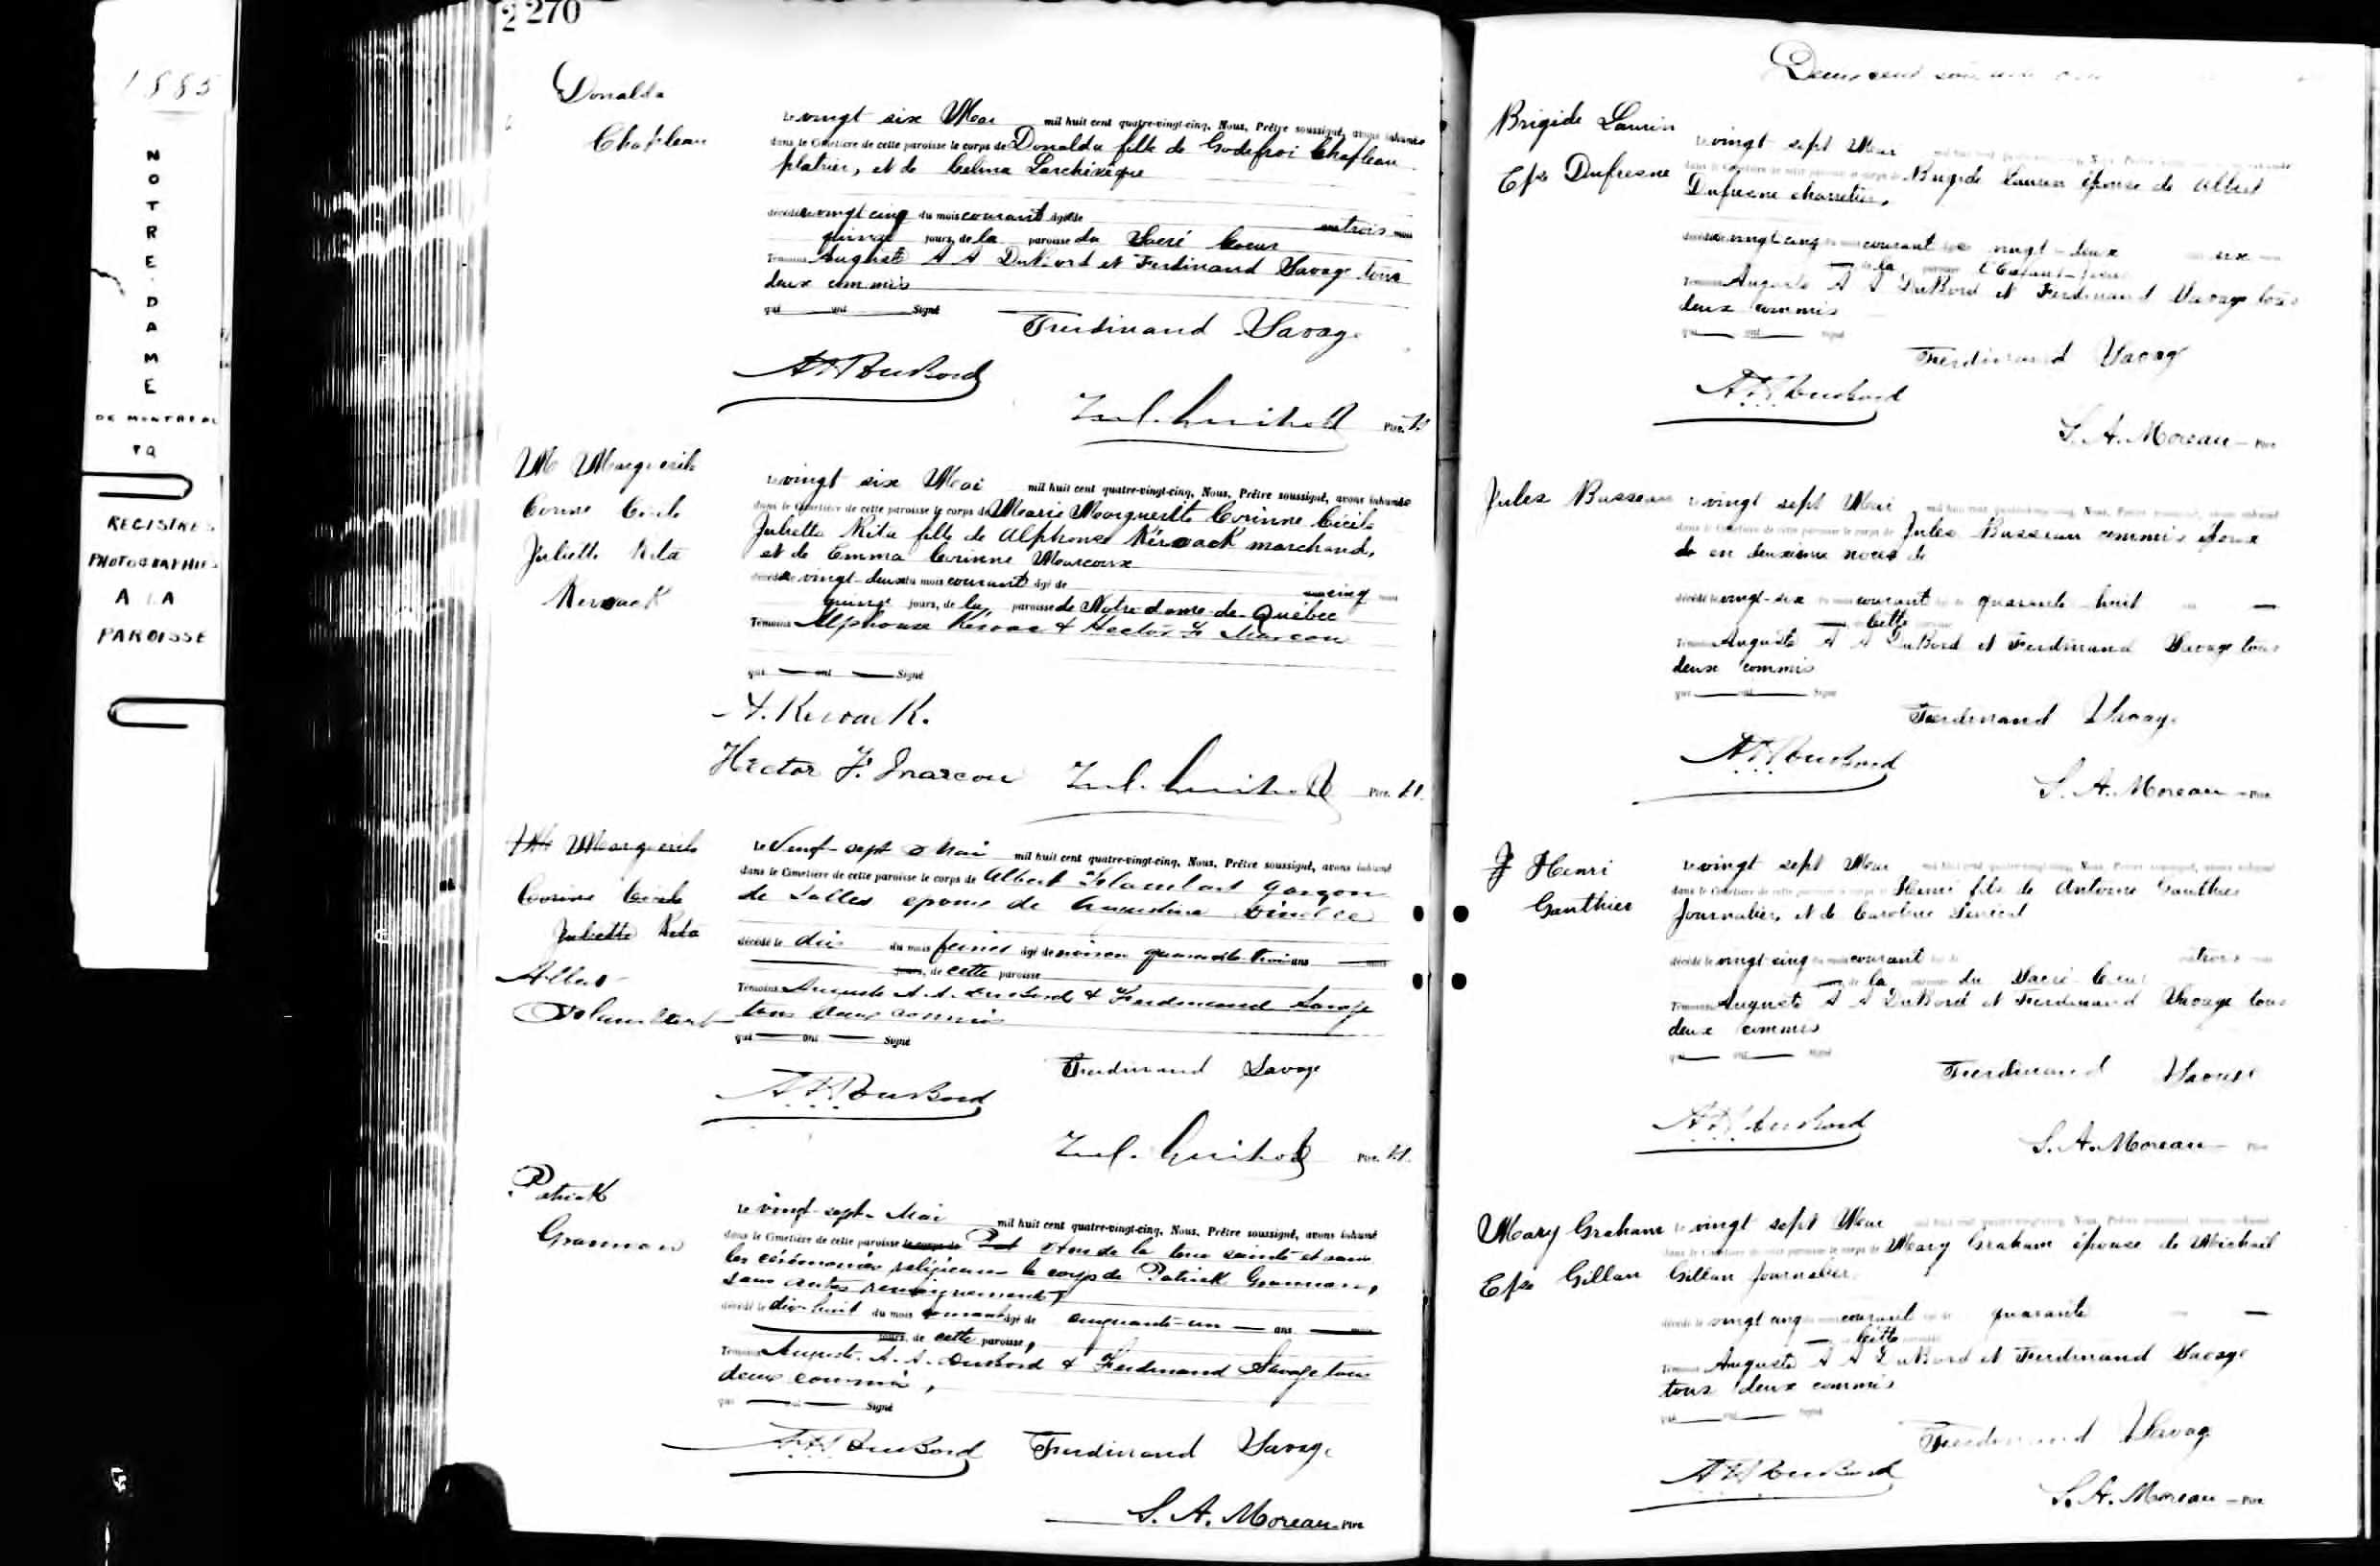 1885
NOTRE-DAME
DE MONTREAL
REGISTRES
PHOTOGRAPHIES
A LA
PAROISSE
2 270
Donalda
Chapleau
Le vingt six Mai mil huit cent quatre-vingt-cinq, Nous, Prêtre soussigné, avons inhumé
dans le Cimetière de cette paroisse le corps de Donalda fille de Godefroi Chapleau
platrier, et de Celina Larchévêque
décédée le vingt cinq du mois courant âgée de ans trois mois
quinze jours, de la paroisse du Sacré Coeur
Témoins Auguste A A DuBord et Ferdinand Savage tous
deux commis
qui ont Signé
Ferdinand Savage
A A DuBord
Ptre.
M Marguerite
Corinne Cécile
Juliette Rita
Kerouack
Le vingt six Mai mil huit cent quatre-vingt-cinq, Nous, Prêtre soussigné, avons inhumé
dans le Cimetière de cette paroisse le corps de Marie Marguerite Corinne Cécile
Juliette Rita fille de Alphonse Kérouack marchand,
et de Emma Corinne Marcoux
décédée le vingt-deux du mois courant âgé de ans cinq mois
quinze jours, de la paroisse de Notre-dame-de-Québec
Témoins Alphonse Kérouac & Hector F Marcou
qui ont Signé
A. Kerouack.
Hector F. Marcou
Ptre.
M Marguerite
Corinne Cécile
Juliette Rita
Albert
Le Vingt-sept Mai mil huit cent quatre-vingt-cinq, Nous, Prêtre soussigné, avons inhumé
dans le Cimetière de cette paroisse le corps de Albert garçon
de Salles epoux de
décédé le dix du mois fevrier âgé de environ quarante-trois ans mois
jours, de cette paroisse
Témoins Auguste A. A. DuBord & Ferdinand Savage
tous deux commis
qui ont Signé
Ferdinand Savage
A A DuBord
Ptre.
Patrick
Grannan
Le vingt-sept Mai mil huit cent quatre-vingt-cinq, Nous, Prêtre soussigné, avons inhumé
dans le Cimetière de cette paroisse le corps de Pat de la terre sainte et sans
les cérémonies religieuses le corps de Patrick Grannan,
sans autres renseignements,
décédé le dix-huit du mois courant âgé de cinquante-un ans mois
jours, de cette paroisse,
Témoins Auguste. A. A. DuBord & Ferdinand Savage tous
deux commis,
qui ont Signé
A A DuBord Ferdinand Savage
S. A. Moreau Ptre
Deux cent
Brigide Laurin
Epse Dufresne
Le vingt sept Mai
Brigide Laurin épouse de Albert
Dufresne charretier,
décédée le vingt cinq du mois courant âgée vingt-deux
de la paroisse l'Enfant-Jésus
Témoins Auguste A A DuBord et Ferdinand Savage tous
deux commis
qui ont Signé
Ferdinand Savage
A A DuBord
S. A. Moreau Ptre
Jules Busseau
Le vingt sept Mai
dans le Cimetière de cette paroisse le corps de Jules Busseau commis époux
de en deuxième noces de
décédé le vingt-six du mois courant âgé de quarante-huit
Cette
Témoins Auguste A A DuBord et Ferdinand Savage tous
deux commis
qui ont Signé
Ferdinand Savage
A A DuBord
S. A. Moreau Ptre
J Henri
Gauthier
Le vingt sept Mai
dans le Cimetière de cette paroisse le corps de Henri fils de Antoine Gauthier
Journalier, et de Caroline
décédé le vingt cinq du mois courant trois
de la du Sacré Coeur
Témoins Auguste A A DuBord et Ferdinand Savage tous
deux commis
qui ont Signé
Ferdinand Savage
A A DuBord
S. A. Moreau
Mary Graham
Epse Gillan
Le vingt sept Mai
Mary Graham épouse de Michael
Gillan Journalier
décédée le vingt cinq du mois courant quarante
Cette
Témoins Auguste A A DuBord et Ferdinand Savage
tous deux commis
qui ont Signé
Ferdinand Savage
A A DuBord
S. A. Moreau Ptre